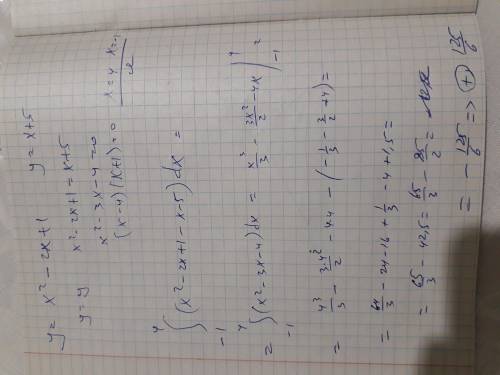 y = x² - 2x + 1    y = x + 5
y = y    x² - 2x + 1 = x + 5
x² - 3x - 4 = 0
(x - 4)(x + 1) = 0    x = 4  x = -1
∫₋₁⁴ (x² - 2x + 1 - x - 5) dx =
= ∫₋₁⁴ (x² - 3x - 4) dx = x³/3 - 3x²/2 - 4x |₋₁⁴ =
= 4³/3 - 3·4²/2 - 4·4 - (-1/3 - 3/2 + 4) =
= 64/3 - 24 - 16 + 1/3 - 4 + 1,5 =
= 65/3 - 42,5 = 65/3 - 85/2 =
= - 125/6 => + 125/6